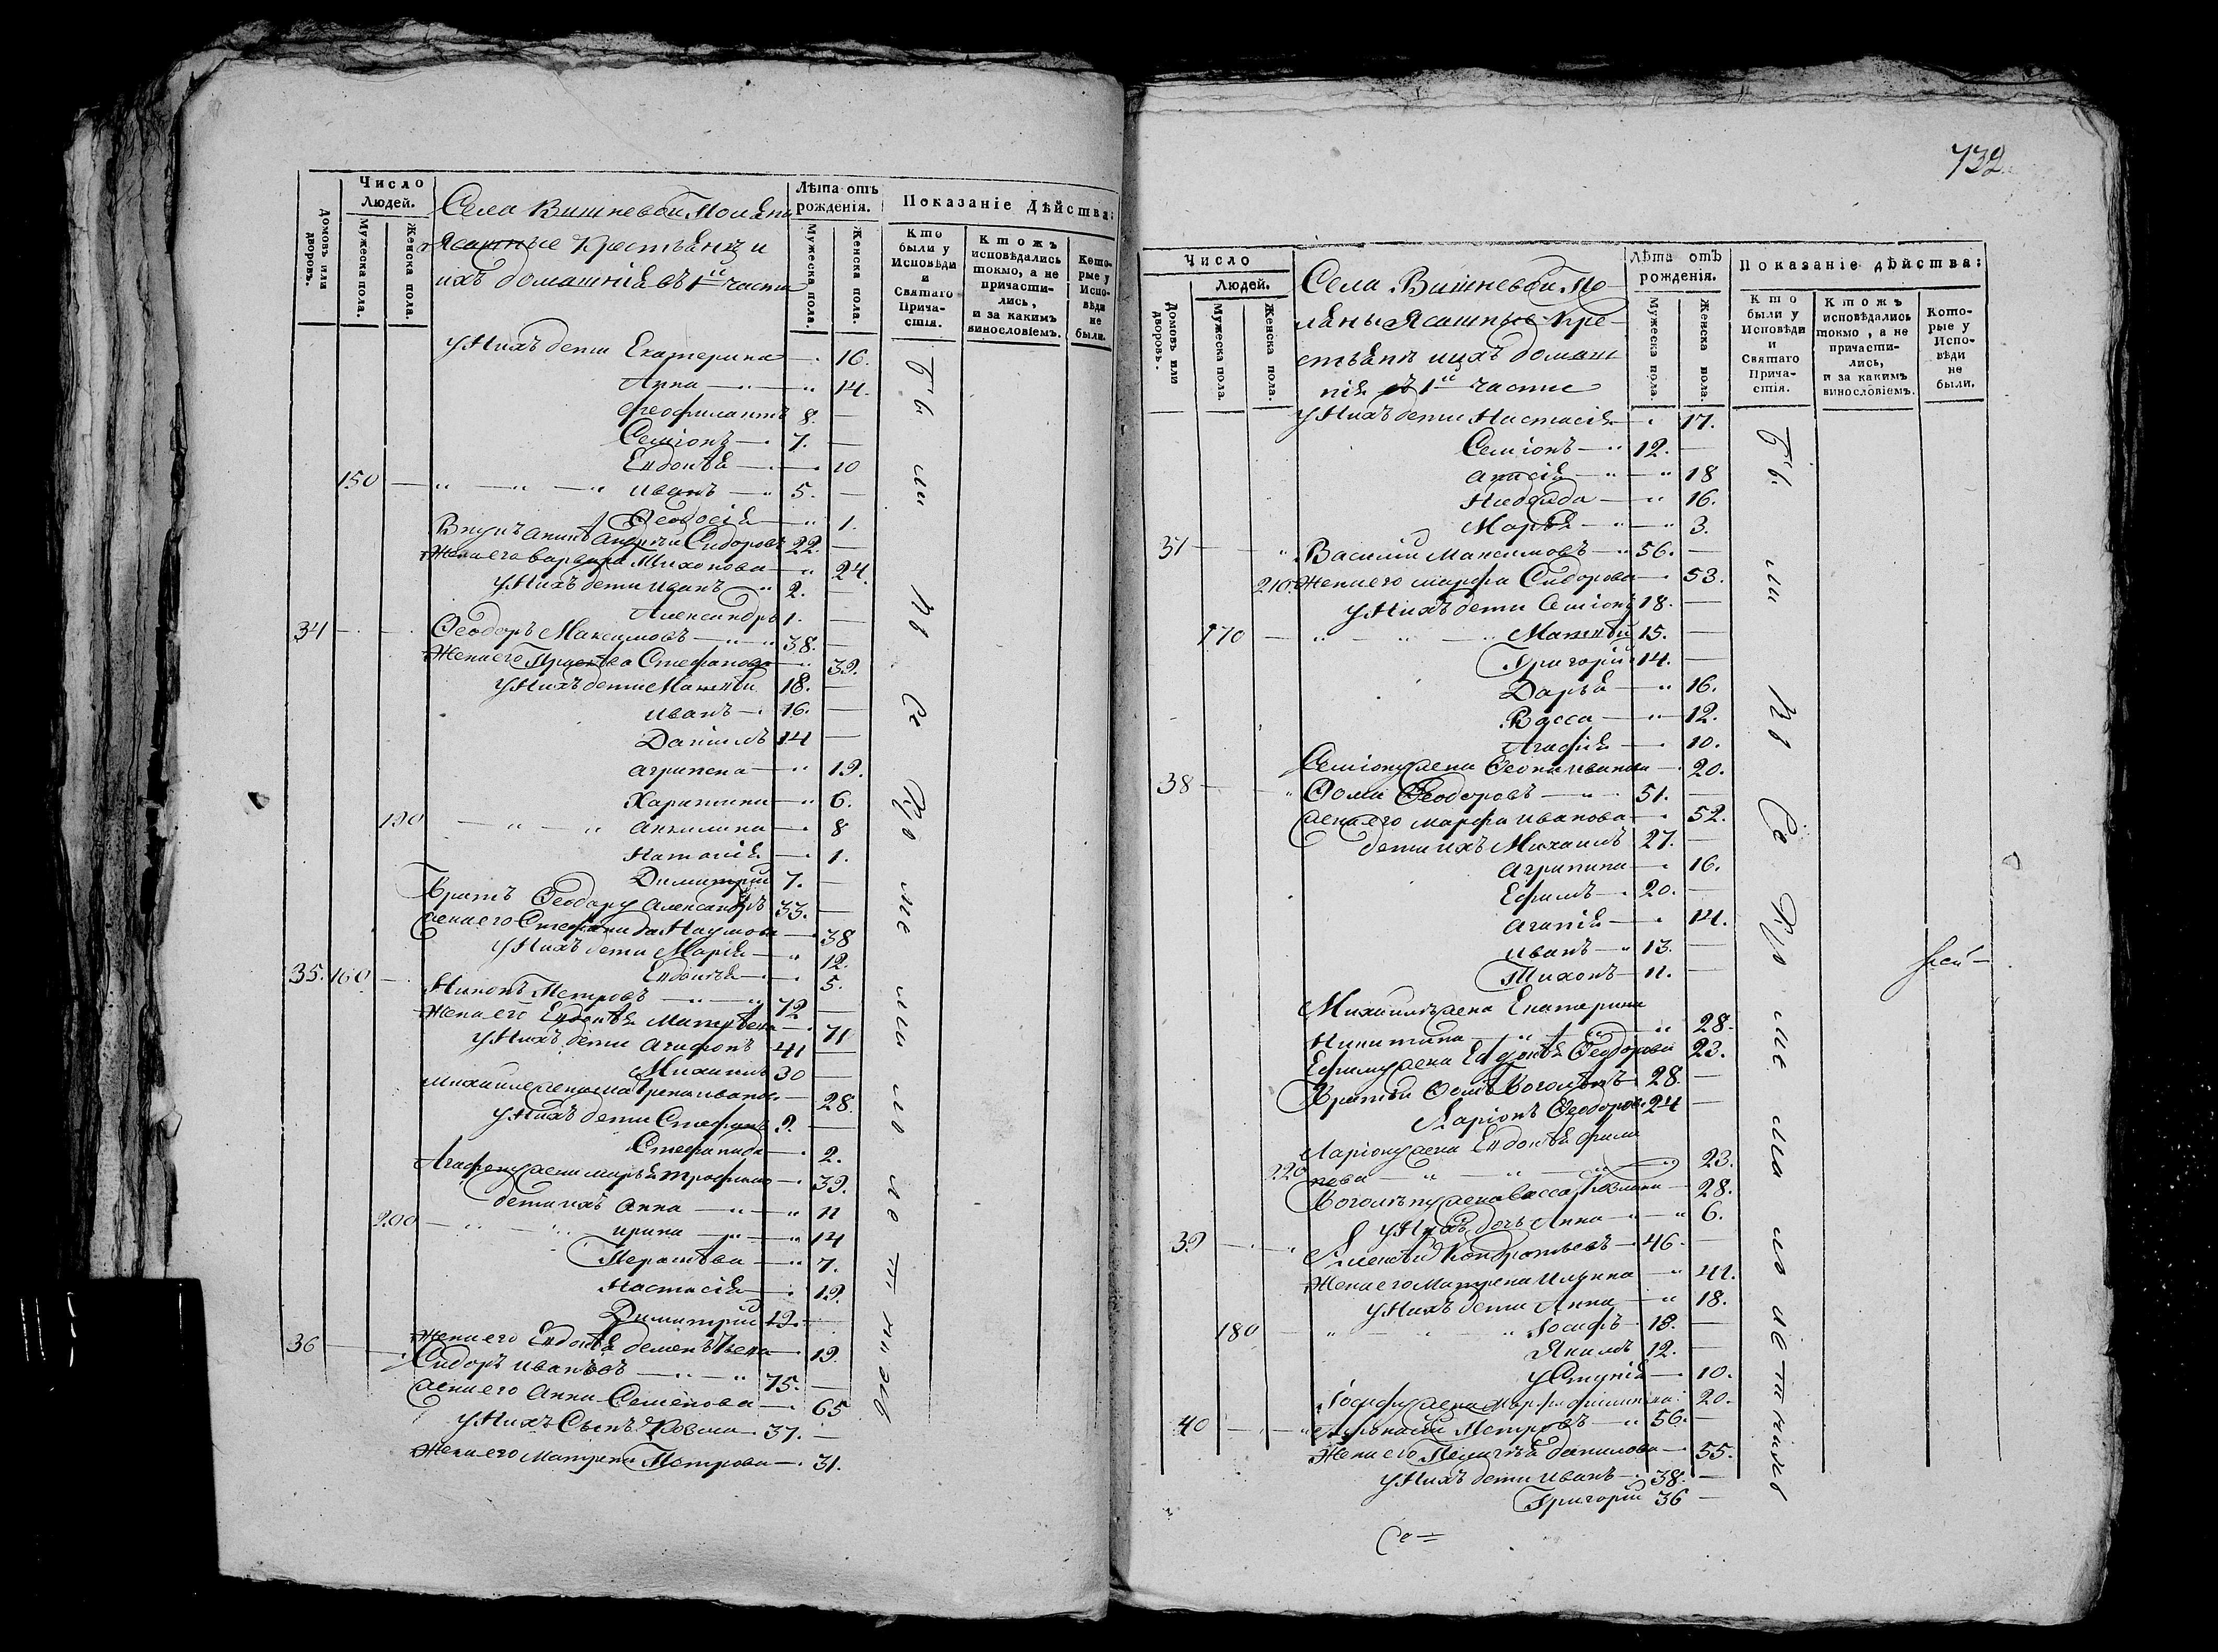 Число
Людей.
Домовъ или дворовъ.
Мужеска пола.
Женска пола.
Села Вишневой Поляны
Ясашные Крестьянъ и
ихъ домашнія въ 1й части
Лѣта отъ
рожденія.
Мужеска пола.
Женска пола.
Показаніе Дѣйства:
Кто
были у
Исповѣди
и
Святаго
Прича-
стія.
Ктожъ
исповѣдались
токмо, а не
причасти-
лись,
и за какимъ
винословіемъ.
Кото-
рые у
Испо-
вѣди
не
были.
У Нихъ дети Екатерина — 16.
Анна — 14.
Феофилактъ 8. —
Семіонъ — 7. —
Евдокія — 10
150 — Иванъ — 5. —
Феодосія — 1.
Внукъ Сидоровъ 22. —
Жена его Варвара Тихонова — 24.
У Нихъ дети Иванъ 2. —
Александръ 1. —
34 — Феодоръ Максимовъ — 38. —
Жена его Стефанова — 39.
У Нихъ дети Матвѣй 18. —
Иванъ — 16. —
Даніилъ 14 —
Агрипена — 19.
Харитина — 6.
190 — Акилина — 8
Наталія — 1.
Димитрій 7. —
Братъ Феодору Александръ 33. —
жена его Стефанида Наумова — 38
У Нихъ дети Марія — 12.
Евдокія — 5.
35. 160 — Никонъ Петровъ — 72 —
Жена его Евдокія Матвѣева — 71
У Нихъ дети Агафонъ 41 —
Михаилъ 30 —
Михаиле жена Матрена Иванов. — 28.
У Нихъ дети Стефанъ 9. —
Стефанида — 2.
Агафону жена Марья Трофимо — 39.
дети ихъ Анна — 11
200 — Ирина — 14
Параскева — 7.
Настасія — 19.
Димитрій 19. —
Жена его Евдокія Дементьева — 19.
36 — Сидоръ Ивановъ — 75. —
жена его Анна Семенова — 65
У Нихъ Сынъ Козма — 37. —
Жена его Матрена Петрова — 31.
были на се мо
732.
Число
Людей.
Домовъ или дворовъ.
Мужеска пола.
Женска пола.
Села Вишневой По-
ляны Ясашные Кре-
стьянъ и ихъ домаш
нія въ 1й части
Лѣта отъ
рожденія.
Мужеска пола.
Женска пола.
Показаніе дѣйства:
Кто
были у
Исповѣди
и
Святаго
Прича-
стія.
Ктожъ
исповѣдались
токмо, а не
причасти-
лись,
и за какимъ
винословіемъ.
Кото-
рые у
Испо-
вѣди
не
были.
У Нихъ дети Настасія — 17.
Семіонъ — 12. —
18
16.
Марья — 3.
37 — Василій Максимовъ — 56. —
210. Жена его Марфа Сидорова — 53.
У Нихъ дети Семіонъ 18. —
170 — Матвѣй 15. —
Григорій 14. —
Дарья — 16.
Васса — 12.
Агафія — 10.
Семіону жена Иванова — 20.
38 — Фома Феодоровъ — 51. —
жена его Марфа Иванова — 52.
дети ихъ Михаилъ 27. —
Агрипина — 16.
Ефимъ — 20. —
Агапія — 14.
Иванъ — 13. —
Тихонъ — 11. —
Михаилѣ жена Екатерина
Никитина — 28.
Ефиму жена Евдокія Феодорова 23.
Братьи 28. —
Ларіонъ Феодоров. 24 —
Ларіону жена Евдокія Фили
220 пова — 23.
жена Васса — 28.
У Нихъ дочь Анна — 6.
39 — Алексѣй Кондратьевъ — 46. —
Жена его Матрена — 41.
У Нихъ дети Анна — 18.
180 — Іосифъ — 18. —
Якимъ 12. —
Устинія — 10.
Іосифу жена 20.
40 — Афонасій Петровъ — 56. —
Жена его Пелагѣя Данилова — 55.
У Нихъ дети Иванъ — 38. —
Григорій 36 —